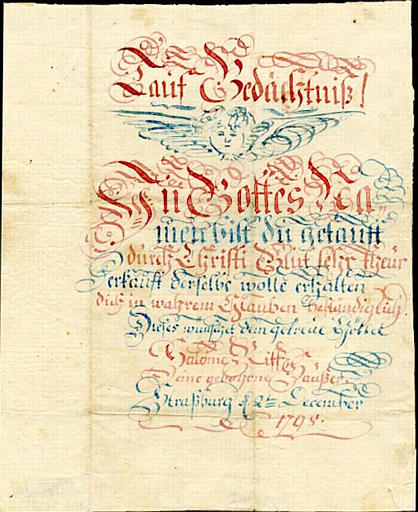 Tauf Gedächtniß!
In Gottes Na
men bist du getauft
durch Christi Blut sehr theur
erkauft derselbe wolle erhalten
dich in wahrem Glauben beständiglich.
Dieses wünschet dein getreue Göttel
Salome
eine gebohrne
Straßburg d. 2ten December
1798.